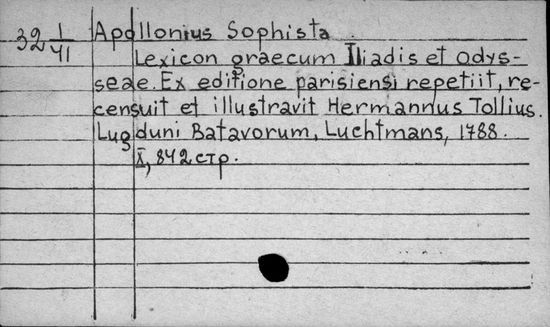 32 1/VI Apollonius Sophista
Lexicon graecum Iliadis et Odys-
seae. Ex editione parisiensi repetiit, re-
censuit et illustravit Hermannus Tollius.
Lugduni Batavorum, Luchtmans, 1788.
X, 842 стр.